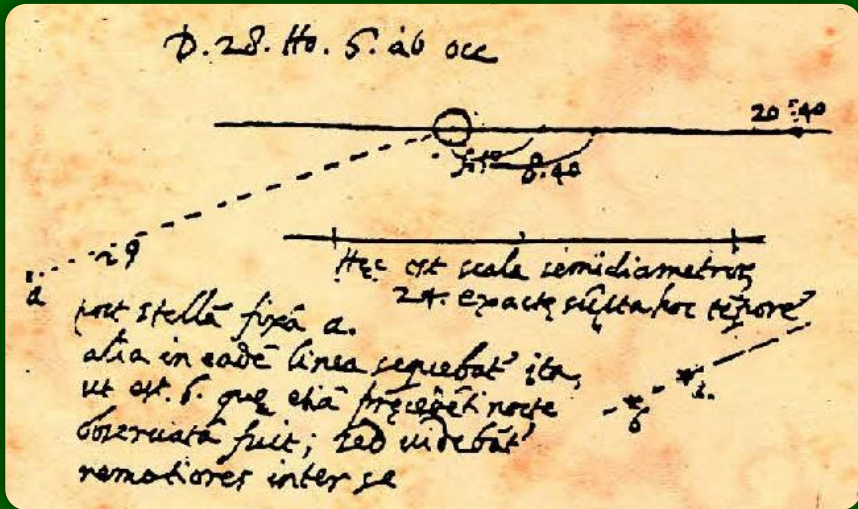 D. 28. Ho. 6. ab occ
20 : 40
8.40
29
a
Hęc est scala semidiametrorꝝ
24. exactę sūpta hoc tēpore
post stellā fixā a.
alia in eadē linea sequebat' ita,
ut est. b. quę etiā pręcedēti nocte
obseruata fuit; sed uidebāt'
remotiores inter se
b